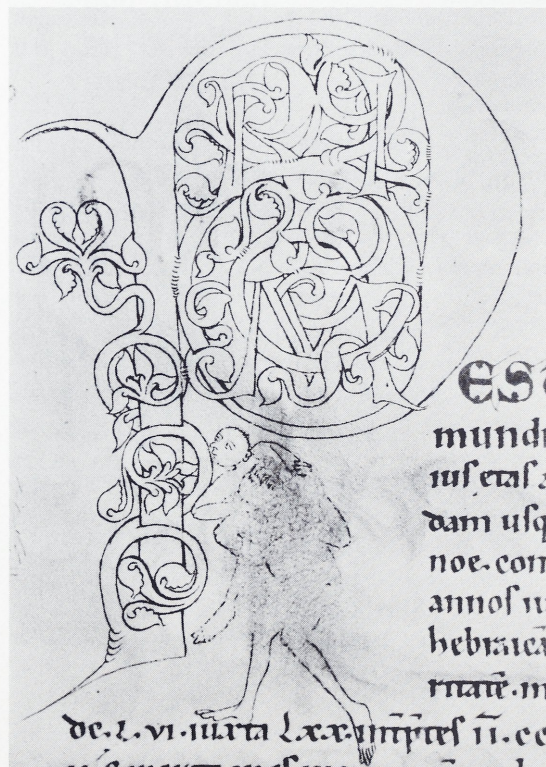 P
EST
mundi
ius etas a
dam usq
noe. con
annos iu
hebraicā
ritatē. m
de. L. vi. iuxta Lxx. int̄p̄tes II. cc